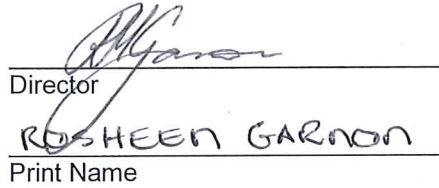 Director
ROSHEEN GARNON
Print Name